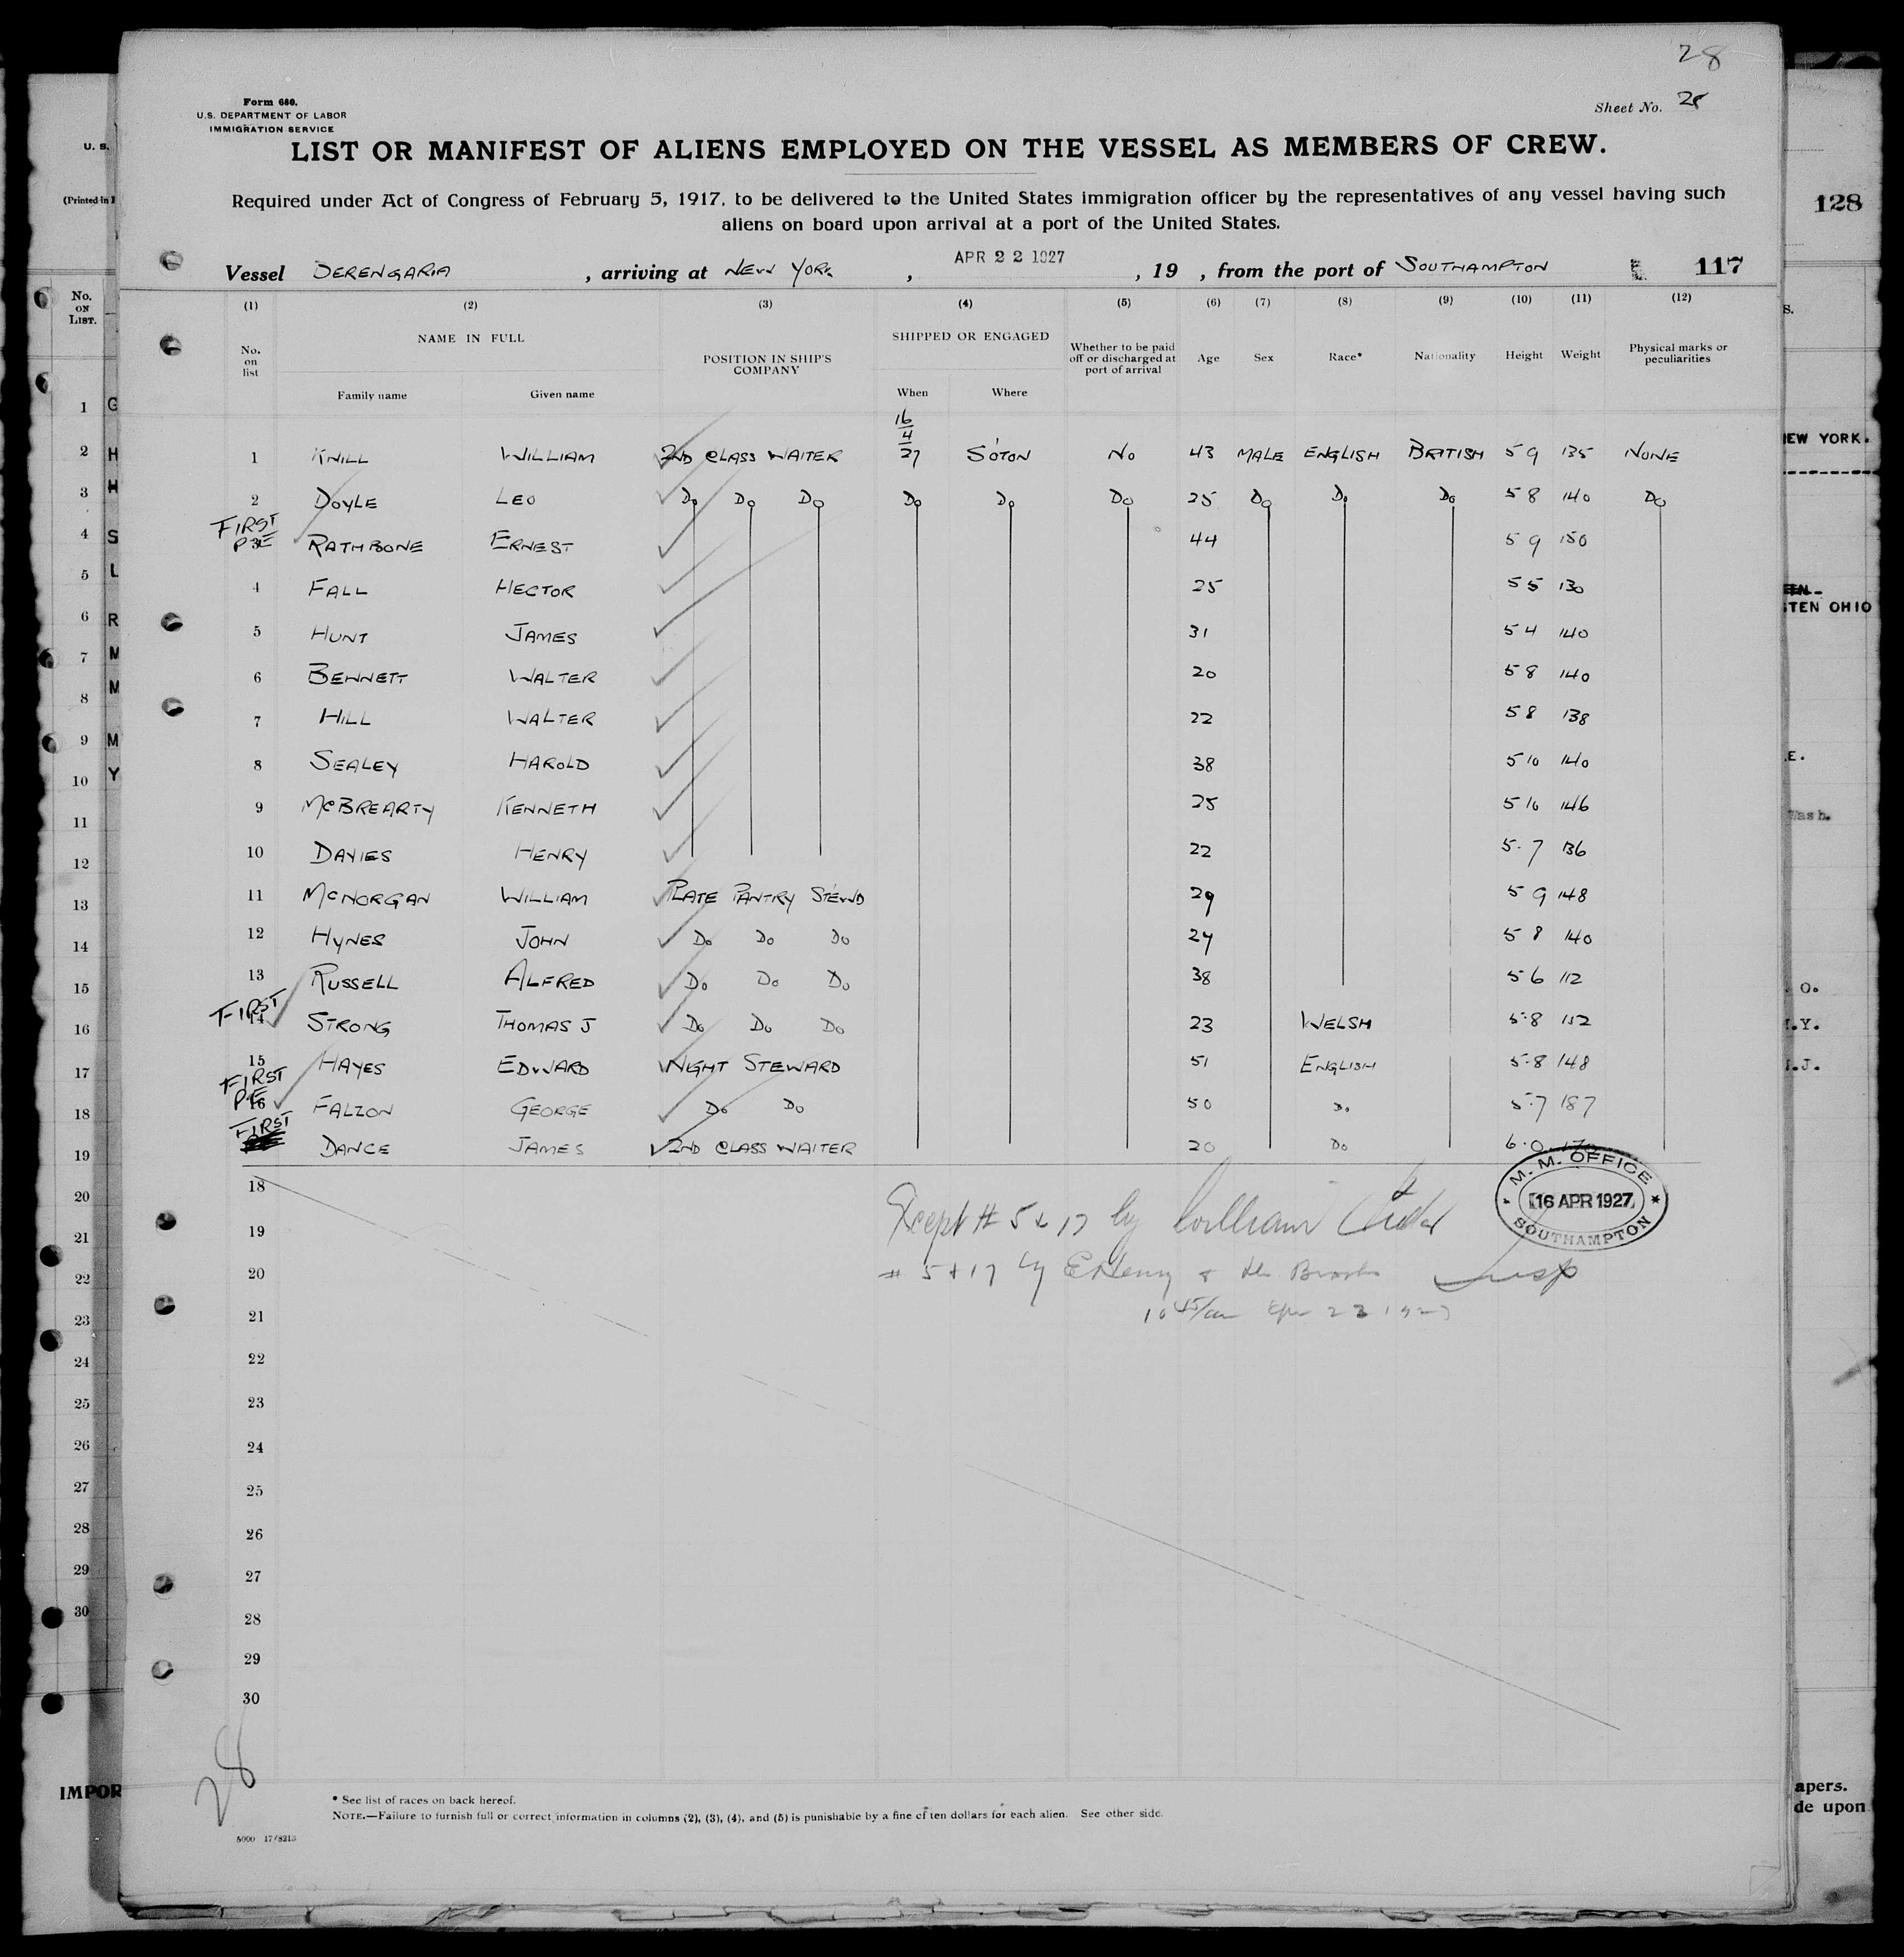 28
Form 680.
U.S. DEPARTMENT OF LABOR
IMMIGRATION SERVICE
Sheet No. 28
LIST OR MANIFEST OF ALIENS EMPLOYED ON THE VESSEL AS MEMBERS OF CREW.
Required under Act of Congress of February 5, 1917, to be delivered to the United States immigration officer by the representatives of any vessel having such
aliens on board upon arrival at a port of the United States.
Vessel BERENGARIA , arriving at NEW YORK , APR 22 1927 , 19 , from the port of SOUTHAMPTON 117
(1) (2) (3) (4) (5) (6) (7) (8) (9) (10) (11) (12)
No. on list NAME IN FULL POSITION IN SHIP'S COMPANY SHIPPED OR ENGAGED Whether to be paid off or discharged at port of arrival Age Sex Race* Nationality Height Weight Physical marks or peculiarities
Family name Given name When Where
1 KNILL WILLIAM 2ND CLASS WAITER 16/4/27 S'OTON NO 43 MALE ENGLISH BRITISH 5 9 135 NONE
2 DOYLE LEO DO DO DO DO DO DO 25 DO DO DO 5 8 140 DO
FIRST
3 RATHBONE ERNEST 44 5 9 150
4 FALL HECTOR 25 5 5 130
5 HUNT JAMES 31 5 4 140
6 BENNETT WALTER 20 5 8 140
7 HILL WALTER 22 5 8 138
8 SEALEY HAROLD 38 5 10 140
9 McBREARTY KENNETH 25 5 10 146
10 DAVIES HENRY 22 5.7 136
11 McNORGAN WILLIAM PLATE PANTRY STEWD 29 5 9 148
12 HYNES JOHN DO DO DO 24 5 8 140
13 RUSSELL ALFRED DO DO DO 38 5 6 112
FIRST
14 STRONG THOMAS J DO DO DO 23 WELSH 5.8 152
15 HAYES EDWARD NIGHT STEWARD 51 ENGLISH 5.8 148
FIRST
16 FALZON GEORGE DO DO 50 DO 5.7 187
FIRST
DANCE JAMES 2ND CLASS WAITER 20 DO 6.0 170
M. M. OFFICE
16 APR 1927
SOUTHAMPTON
18
Except # 5 & 17 by William
19
# 5 & 17 by E Henry & Insp
20
10 45/am Apr 23 1927
21
22
23
24
25
26
27
28
29
30
28
* See list of races on back hereof.
NOTE.—Failure to furnish full or correct information in columns (2), (3), (4), and (5) is punishable by a fine of ten dollars for each alien. See other side.
5000 17/8213
U. S.
(Printed in
No. ON LIST.
1 G
2 H
3 H
4 S
5 L
6 R
7 M
8 M
9 M
10 Y
11
12
13
14
15
16
17
18
19
20
21
22
23
24
25
26
27
28
29
30
IMPOR
128
S.
NEW YORK.
TEN OHIO
E.
Wash.
O.
.Y.
.J.
apers.
de upon